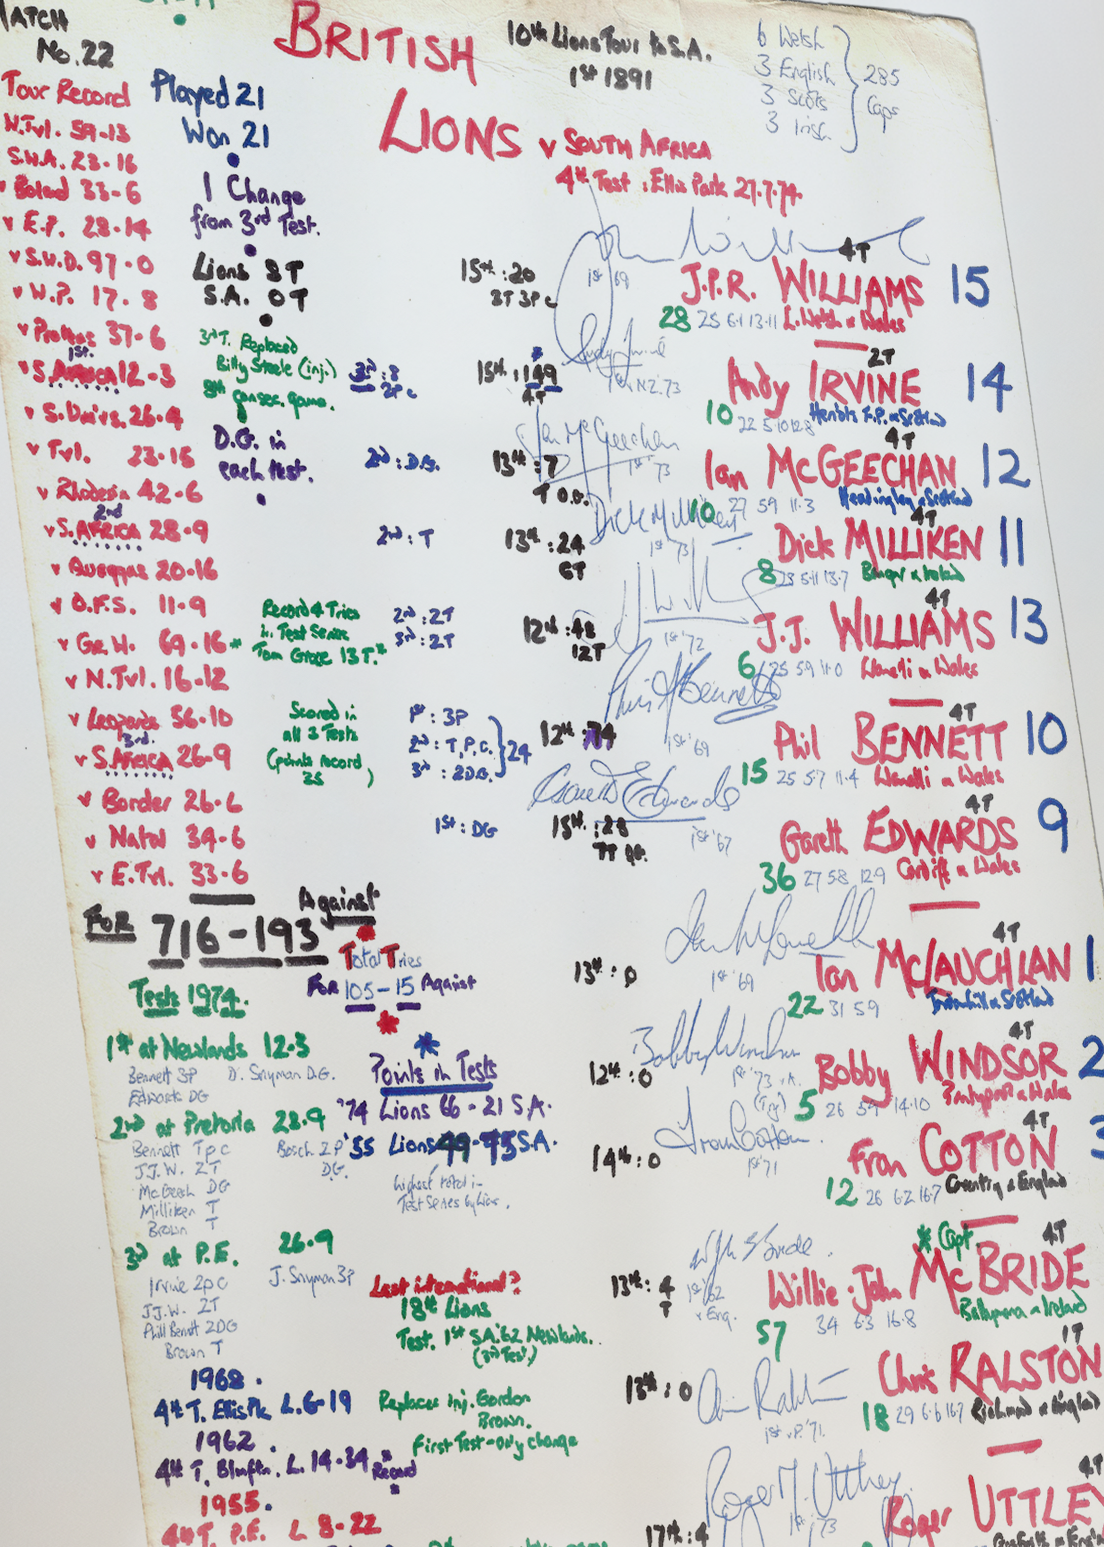 MATCH
No.22
BRITISH
LIONS v SOUTH AFRICA
4th Test : Ellis Park 27.7.74
10th Lions Tour to S.A.
1st 1891
6 Welsh
3 English
3 Scots
3 Irish
285
Caps
Tour Record
Played 21
Won 21
1 Change
from 3rd Test.
Lions 8T
S.A. 0T
3rd T. Replaced
Billy Steele (inj.)
8th consec. game.
D.G. in
each test.
W.Tvl. 59-13
S.W.A. 23-16
v Boland 33-6
v E.P. 28-14
v S.W.D. 97-0
v W.P. 17-8
v Proteas 37-6
1st
v S.AFRICA 12-3
v S.Univs. 26-4
v Tvl. 23-15
v Rhodesia 42-6
2nd
v S.AFRICA 28-9
v Quaggas 20-16
v O.F.S. 11-9
v Gr.W. 69-16*
v N.Tvl. 16-12
v Leopards 56-10
3rd
v S.AFRICA 26-9
v Border 26-6
v Natal 34-6
v E.Tvl. 33-6
Against
FOR 716-193
Total Tries
FOR 105-15 Against
Record 4 Tries
in Test Series
Tom Grace 13T.*
Scored in
all 3 Tests
(points record
25)
15th : 20
3T 3P c
1st '69
4T
J.P.R. WILLIAMS 15
28 25 6.1 13.11 L.Welsh & Wales
3rd : 3
2P c
15th : 149
4T
Andy Irvine
1st NZ '73
2T
Andy IRVINE 14
10 22 5.10 12.8 Heriots F.P. & Scotland
2nd : D.G.
13th : 7
Ian McGeechan
1st '73
4T
Ian McGEECHAN 12
10 27 59 11.3 Headingley & Scotland
2nd : T
13th : 24
6T
Dick Milliken
1st '73
4T
Dick MILLIKEN 11
8 23 5.11 13.7 Bangor & Ireland
2nd : 2T
3rd : 2T
12th : 48
12T
1st '72
4T
J.J. WILLIAMS 13
6 25 59 11.0 Llanelli & Wales
1st : 3P
2nd : T,P,C.
3rd : 2D.G.
24
12th : 74
Phil Bennett
1st '69
4T
Phil BENNETT 10
15 25 5.7 11.4 Llanelli & Wales
1st : DG
15th : 28
Gareth Edwards
1st '67
4T
Gareth EDWARDS 9
36 27 58 12.9 Cardiff & Wales
13th : 0
1st '69
4T
Ian McLAUCHLAN 1
22 31 59 Jordanhill & Scotland
12th : 0
Bobby Windsor
1st '73
4T
Bobby WINDSOR 2
5 26 59 14.10 Pontypool & Wales
14th : 0
Fran Cotton
1st '71
4T
Fran COTTON 3
12 26 6.2 16.7 Coventry & England
13th : 4
T
1st '62
v Eng.
* Capt 4T
Willie-John McBRIDE
57 34 6.3 16.8 Ballymena & Ireland
13th : 0
1st '71
1T
Chris RALSTON
18 29 6.6 16.7 Richmond & England
17th : 4
Roger M. Uttley
1st '73
4T
Roger UTTLEY
Tests 1974.
1st at Newlands 12.3
Bennett 3P D. Snyman D.G.
Edwards DG
2nd at Pretoria 28.9
Bennett T p c Bosch 2P
J.J.W. 2T DG.
McGeech DG
Milliken T
Brown T
3rd at P.E. 26.9
Irvine 2p c J. Snyman 3P
J.J.W. 2T
Phil Benett 2DG
Brown T
1968.
4th T. Ellis Pk L.6-19
1962.
4th T. Blmftn. L. 14-34 Record
1955.
4th T. P.E. L 8-22
Points in Tests
'74 Lions 66 - 21 S.A.
'55 Lions 49-75 S.A.
highest total in
Test Series by Lions.
Last international?
18th Lions
Test. 1st S.A.'62 Newlands.
(3rd Test.)
Replaces inj. Gordon
Brown.
First Test-only change